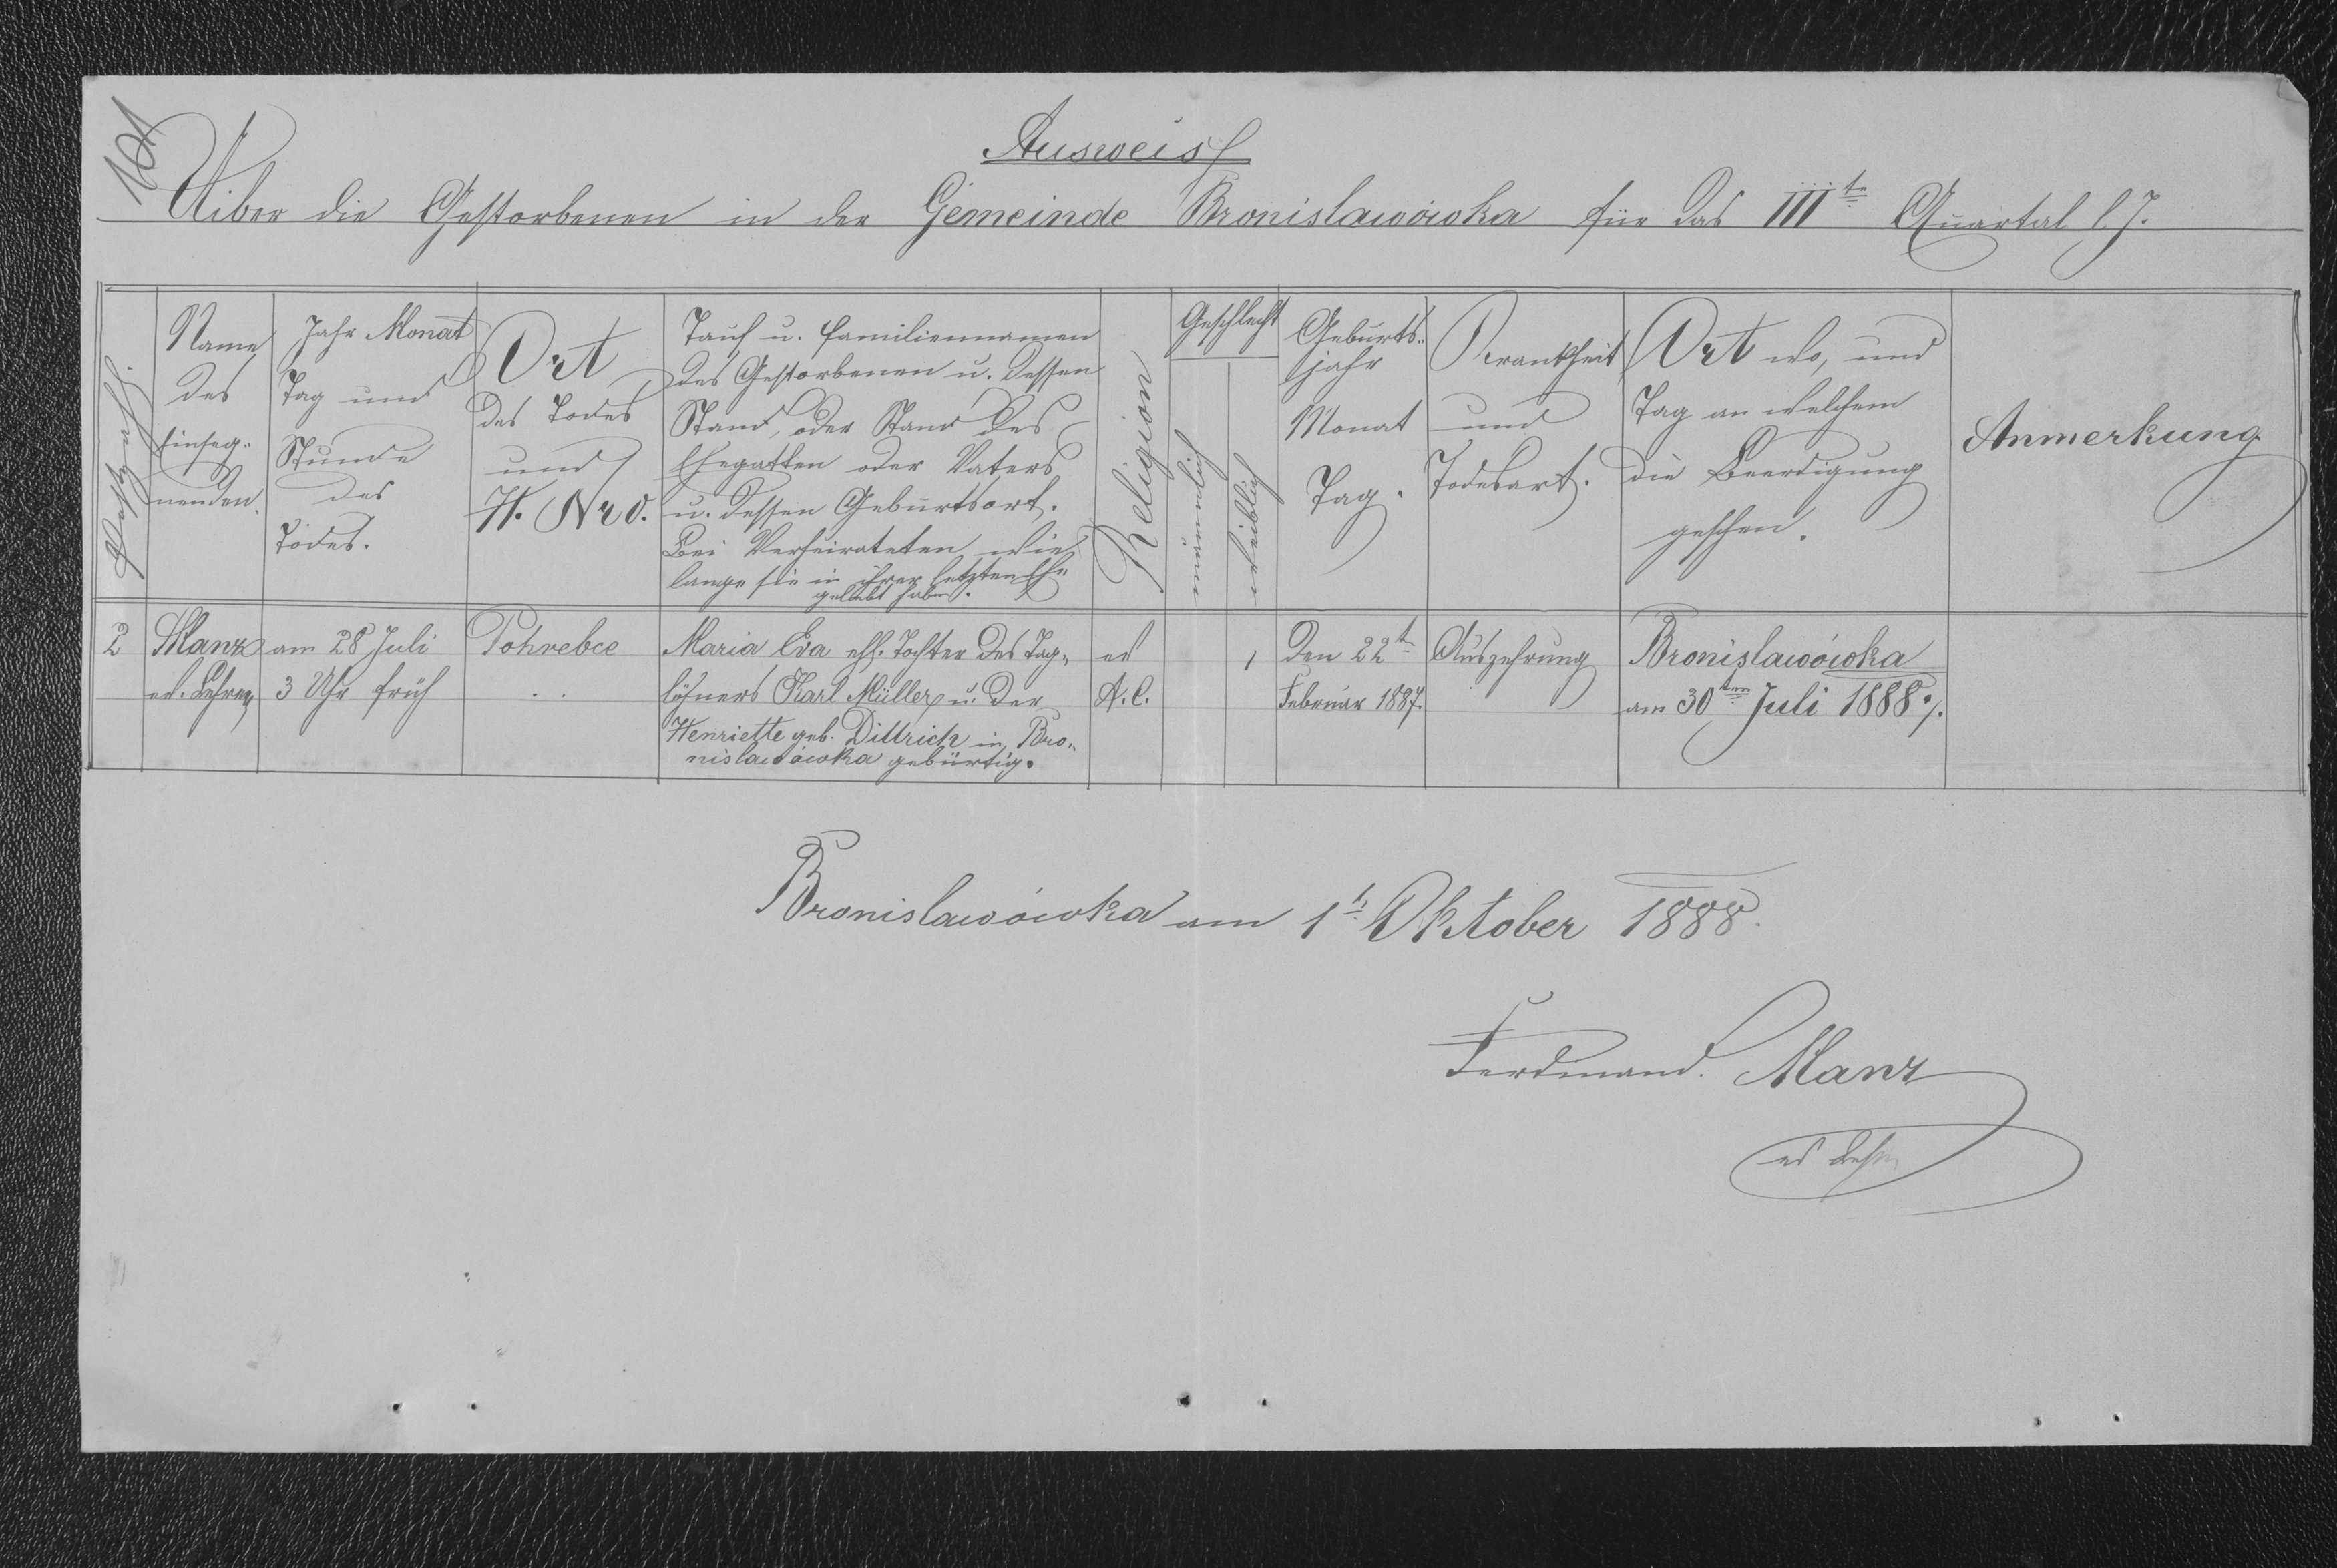 101
Ausweis
Uiber die Gestorbenen in der Gemeinde Bronislawówka für das IIIte Quartal l. J.
Postzahl.
Name
des
Einseg-
nenden.
Jahr Monat
Tag und
Stunde
des
Todes.
Ort
des Todes
und
H. Nro.
Tauf u. Familiennamen
des Gestorbenen u. dessen
Stand, oder Stand des
Ehegatten oder Vaters
u. dessen Geburtsort.
Bei Verheirateten wie
lange sie in ihrer letzten Ehe
gelebt haben.
Religion
Geschlecht
männlich
weiblich
Geburts-
jahr
Monat
Tag.
Krankheit
und
Todesart.
Ort wo, und
Tag an welchem
die Beerdigung
geschehen.
Anmerkung
2
Manz
ev. Lehrer
am 28 Juli
3 Uhr früh
Pohrebce
. .
Maria Eva ehl. Tochter des Tag-
löhners Karl Müller u. der
Henriette geb. Dittrich in Bro-
nislawówka gebürtig.
ev
A. C.
1
den 22t
Februar 1887.
Auszehrung
Bronislawówka
am 30ten Juli 1888 ./.
Bronislawówka am 1t Oktober 1888.
Ferdinand. Manz
ev Lehrer